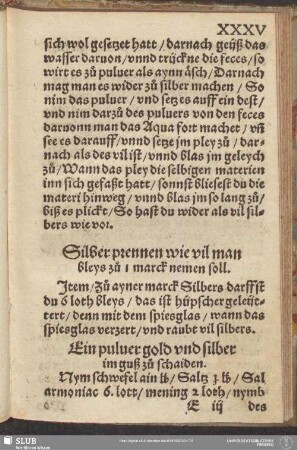 XXXV
sich wol gesetzet hatt / darnach geüß das
wasser daruon / vnnd trückne die feces / so
wirt es zů puluer als aynn äsch / Darnach
mag man es wider zů silber machen / So
nim das puluer / vnd setz es auff ein dest /
vnd nim darzů des puluers von den feces
daruonn man das Aqua fort machet / vñ
see es darauff / vnnd setze jm pley zů / dar-
nach als des vil ist / vnnd blas jm geleych
zů / Wann das pley die selbigen materien
inn sich gefaßt hatt / sonnst bliesest du die
materi hinweg / vnnd blas jm so lang zů /
biß es plickt / So hast du wider als vil sil-
bers wie vor.
Silber prennen wie vil man
bleys zů 1 marck nemen soll.
Item / Zů ayner marck Silbers darffst
du 6 loth bleys / das ist hüpscher geleüt-
tert / denn mit dem spiesglas / wann das
spiesglas verzert / vnd raubt vil silbers.
Ein puluer gold vnd silber
im guß zů schaiden.
Nym schwefel ain lb / Saltz 3 lb / Sal
armoniac 6. lott / mening 2 loth / nymb
E iij des
SLUB
Wir führen Wissen.